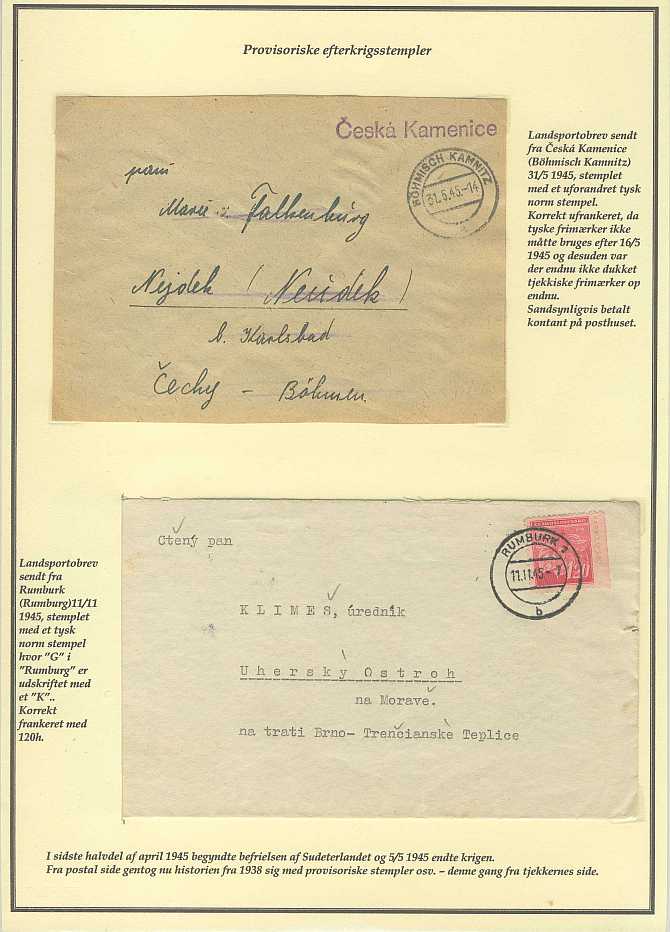 Provisoriske efterkrigsstempler
Česká Kamenice
BÖHMISCH KAMNITZ
31.5.45.-14
a
paní
Marie v. Falkenburg
Nejdek (Neudek)
b. Karlsbad
Čechy - Böhmen
Landsportobrev sendt
fra Česká Kamenice
(Böhmisch Kamnitz)
31/5 1945, stemplet
med et uforandret tysk
norm stempel.
Korrekt ufrankeret, da
tyske frimærker ikke
måtte bruges efter 16/5
1945 og desuden var
der endnu ikke dukket
tjekkiske frimærker op
endnu.
Sandsynligvis betalt
kontant på posthuset.
Landsportobrev
sendt fra
Rumburk
(Rumburg)11/11
1945, stemplet
med et tysk
norm stempel
hvor "G" i
"Rumburg" er
udskriftet med
et "K"..
Korrekt
frankeret med
120h.
RUMBURK 2
11.11.45.-
b
Ctěný pan
KLIMEŠ, úředník
Uherský Ostroh
na Moravě.
na trati Brno- Trenčianské Teplice
I sidste halvdel af april 1945 begyndte befrielsen af Sudeterlandet og 5/5 1945 endte krigen.
Fra postal side gentog nu historien fra 1938 sig med provisoriske stempler osv. – denne gang fra tjekkernes side.